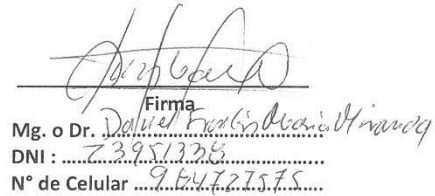 Firma
Mg. o Dr. Daniel Miranda
DNI : 23951338
N° de Celular 984727575